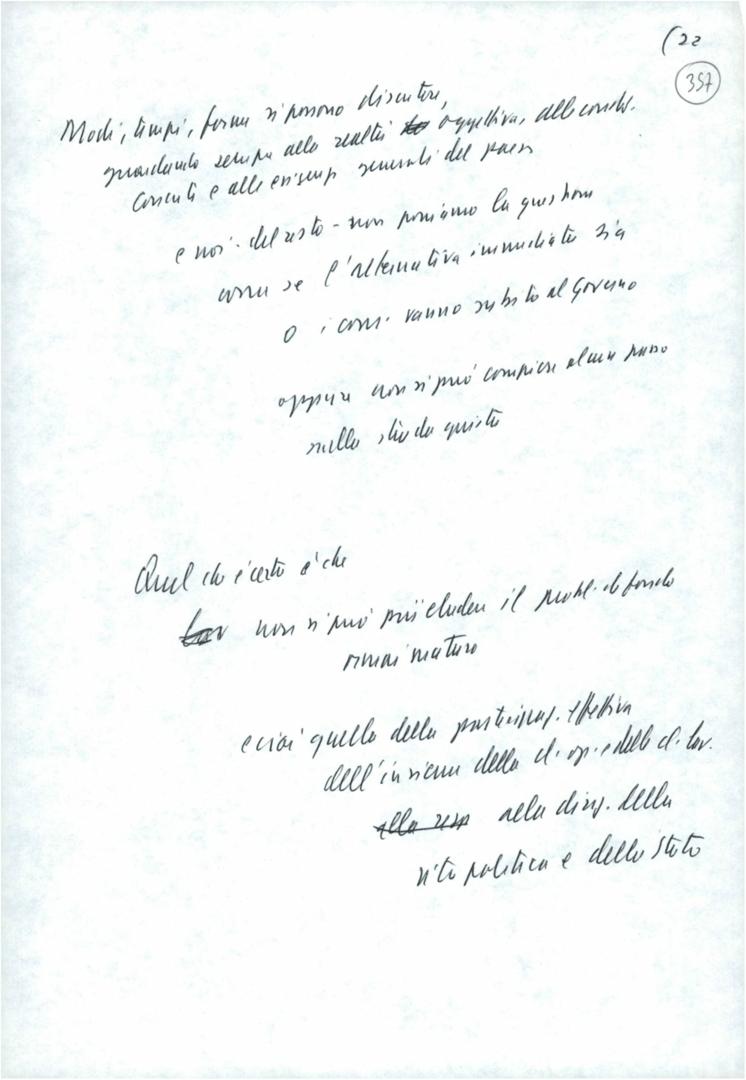 (22
357
Modi, tempi, forme si possono discutere,
guardando sempre alla realtà oggettiva, alle condiz.
concreti e alle esigenze generali del paese
e noi - del resto - non poniamo la questione
come se l'alternativa immediata sia
o i com. vanno subito al Governo
oppure non si può compiere alcun passo
sulla strada giusta
Quel che è certo è che
non si può più eludere il probl. di fondo
ormai maturo
e cioè quello della partecipaz. effettiva
dell'insieme della cl. op. e delle cl. lav.
alla direz. della
vita politica e dello Stato